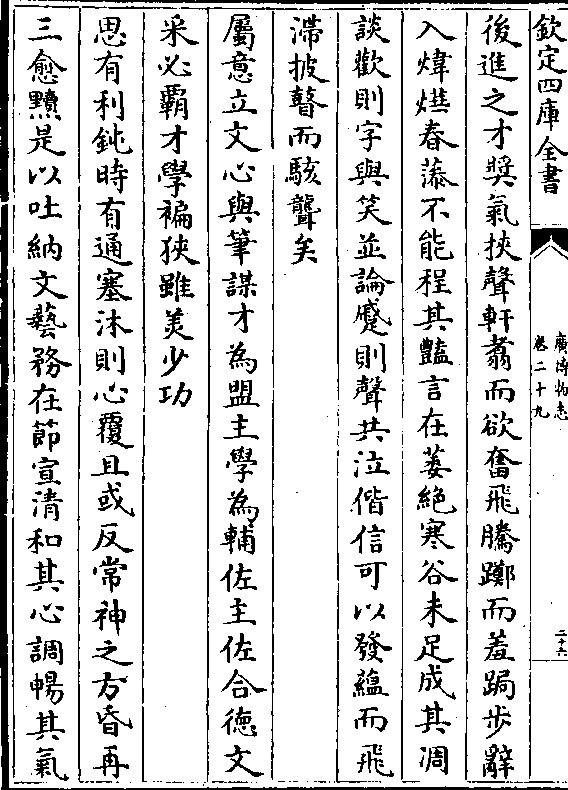 欽定四庫全書
廣博物志
卷二十九
二十六
後進之才奬氣挾聲軒翥而欲奮飛騰躑而羞跼步辭
入煒燁春藻不能程其豔言在萎絶寒谷未足成其凋
談歡則字與笑並論慼則聲共泣偕信可以發藴而飛
滯披瞽而駭聾矣
屬意立文心與筆謀才為盟主學為輔佐主佐合徳文
采必霸才學褊狹雖美少功
思有利鈍時有通塞沐則心覆且或反常神之方昏再
三愈黷是以吐納文藝務在節宣清和其心調暢其氣